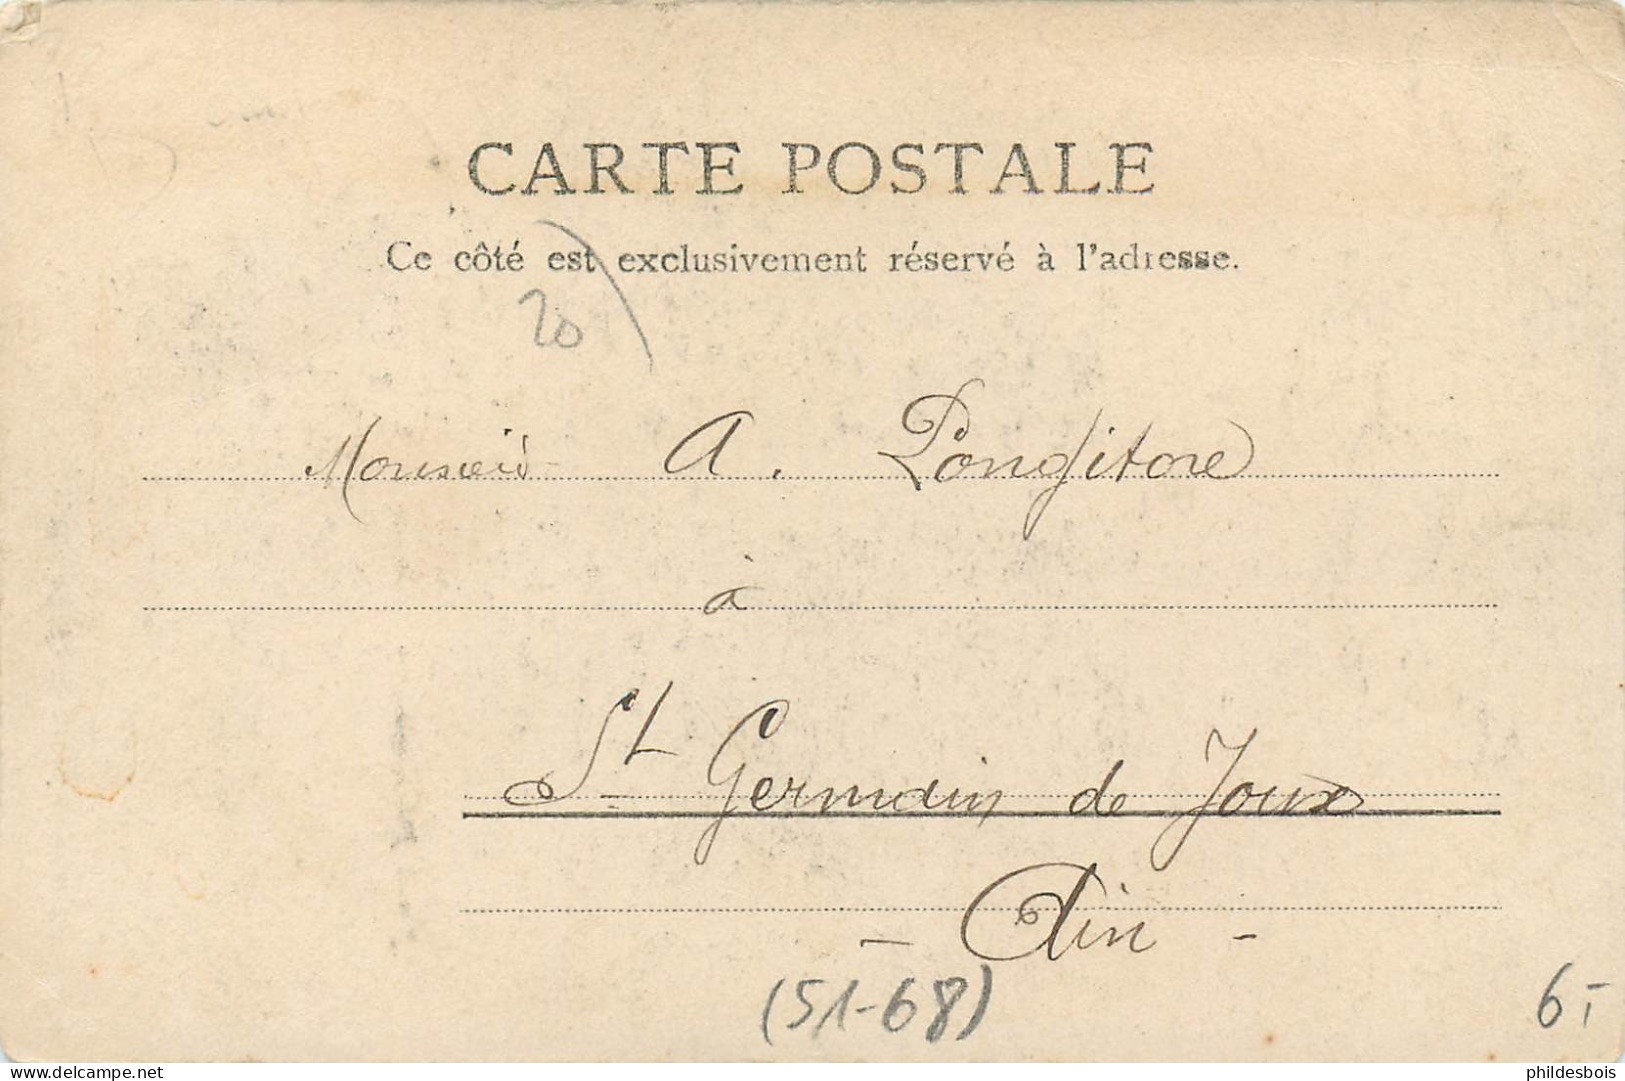 CARTE POSTALE
Ce côté est exclusivement réservé à l'adresse.
20
Monsieur A. Longitore
à
St Germain de Joux
- Ain -
(51-68)
6,-
philDesbois